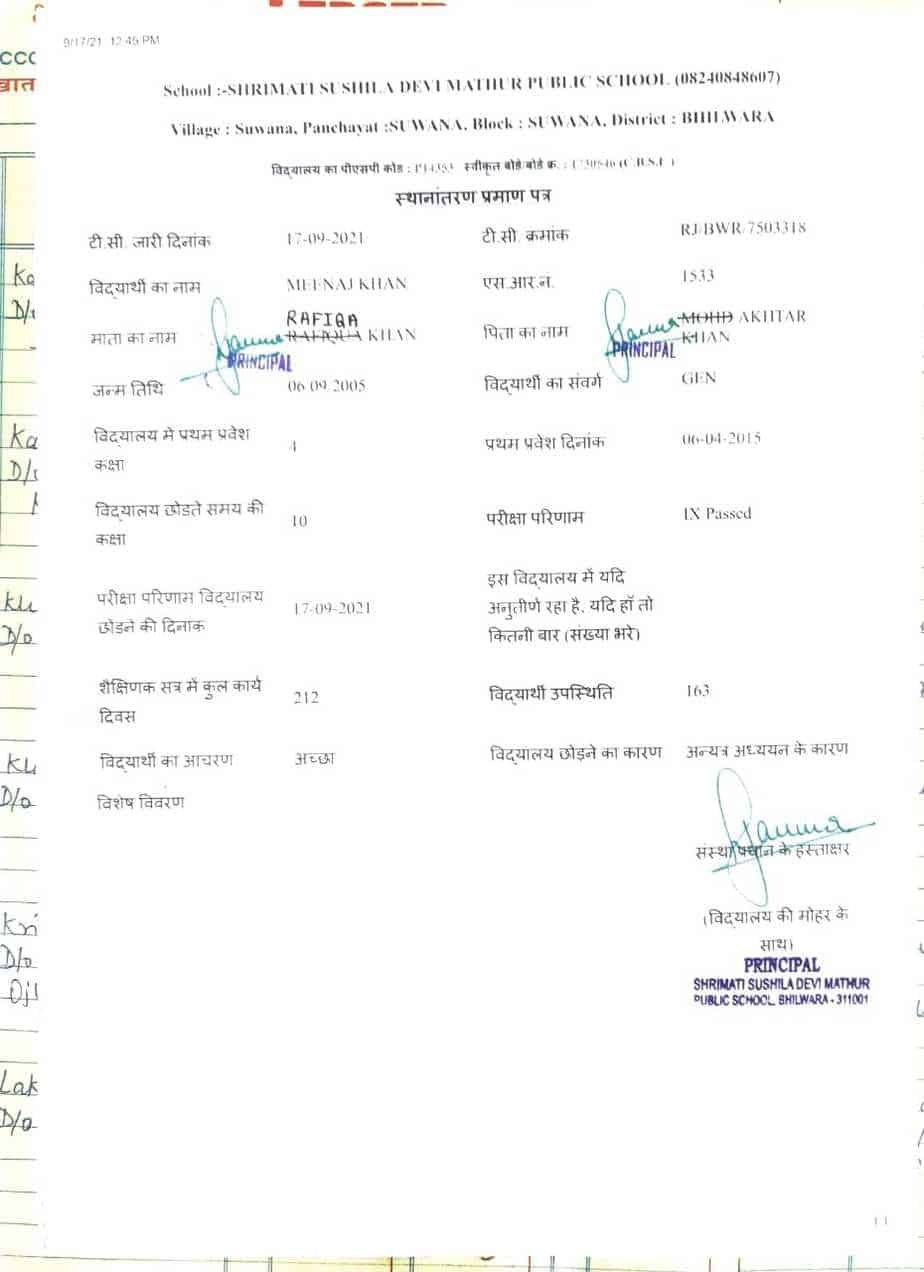 9/17/21 12:45 PM
School :-SHRIMATI SUSHILA DEVI MATHUR PUBLIC SCHOOL (08240848607)
Village : Suwana, Panchayat :SUWANA, Block : SUWANA, District : BHILWARA
विद्यालय का पीएसपी कोड : P14353 स्वीकृत बोर्ड/बोर्ड क्र. : 1730546 (C.B.S.E )
स्थानांतरण प्रमाण पत्र
टी.सी. जारी दिनांक 17-09-2021 टी.सी. क्रमांक RJ/BWR/7503318
विद्यार्थी का नाम MEENAJ KHAN एस.आर.न. 1533
RAFIQA
माता का नाम RAFIQUA KHAN पिता का नाम MOHD AKHTAR
KHAN
PRINCIPAL PRINCIPAL
जन्म तिथि 06-09-2005 विद्यार्थी का संवर्ग GEN
विद्यालय में प्रथम प्रवेश
कक्षा 4 प्रथम प्रवेश दिनांक 06-04-2015
विद्यालय छोडते समय की
कक्षा 10 परीक्षा परिणाम IX Passed
परीक्षा परिणाम विद्यालय
छोडने की दिनांक 17-09-2021
इस विद्यालय में यदि
अनुतीर्ण रहा है, यदि हाँ तो
कितनी बार (संख्या भरे)
शैक्षिणक सत्र में कुल कार्य
दिवस 212 विद्यार्थी उपस्थिति 163
विद्यार्थी का आचरण अच्छा विद्यालय छोड़ने का कारण अन्यत्र अध्ययन के कारण
विशेष विवरण
संस्था प्रधान के हस्ताक्षर
(विद्यालय की मोहर के
साथ)
PRINCIPAL
SHRIMATI SUSHILA DEVI MATHUR
PUBLIC SCHOOL, BHILWARA - 311001
1/1